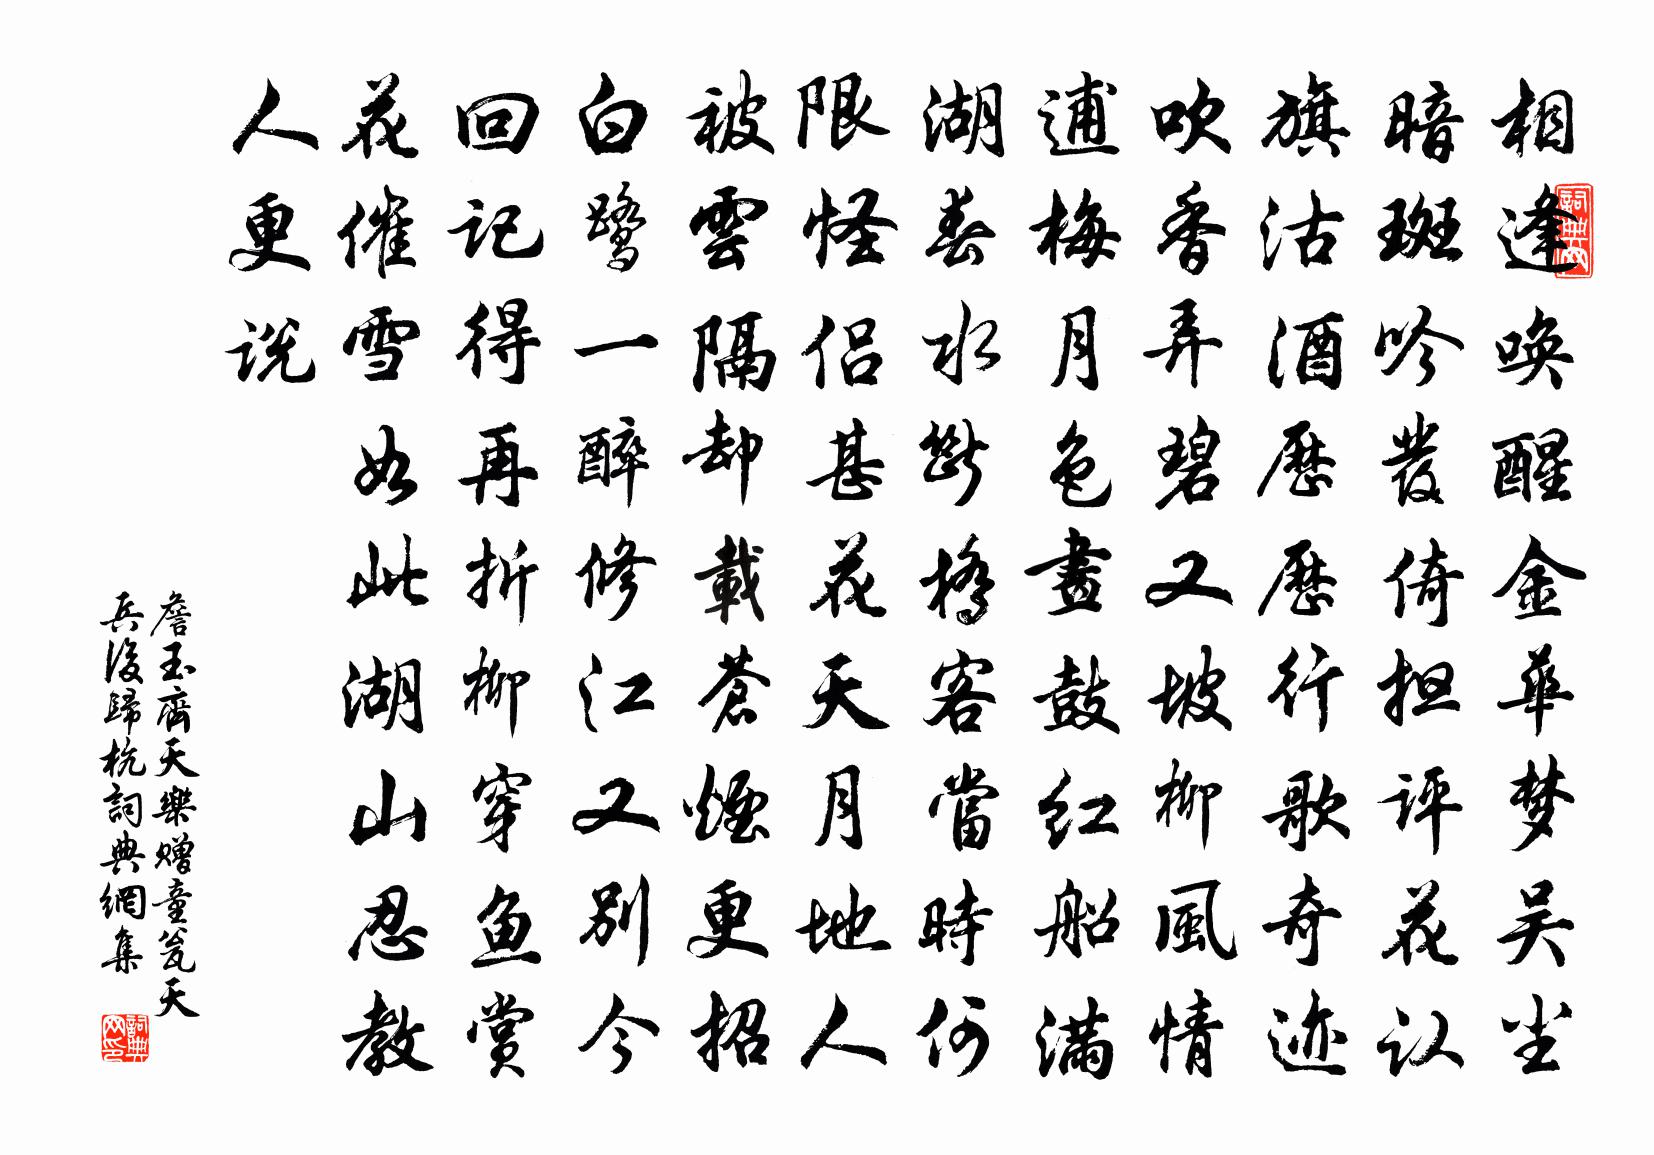 相逢唤醒金華梦吴尘
暗斑吟發倚担评花认
旗沽酒歷歷行歌奇迹
吹香弄碧又坡柳風情
逋梅月色畫鼓红船满
湖春水斷橋客當時何
限怪侣甚花天月地人
被雲隔却載蒼煙更招
白鹭一醉修江又别今
回记得再折柳穿魚赏
花催雪如此湖山忍教
人更说
詹玉齊天樂赠童瓮天
兵後歸杭詞典網集
詞典网
詞典网印